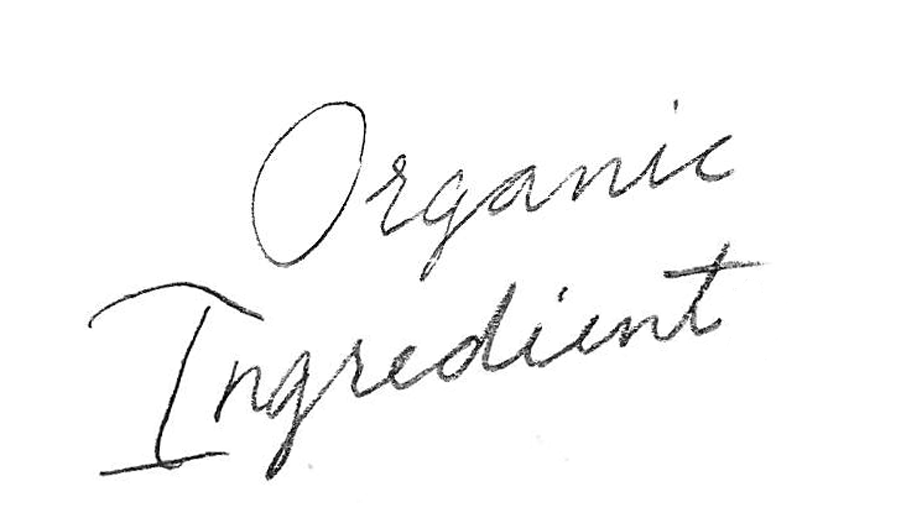 Organic
Ingredient